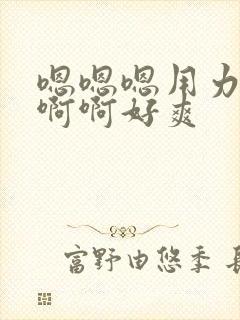 嗯嗯嗯用力
啊啊好爽
富野由悠季